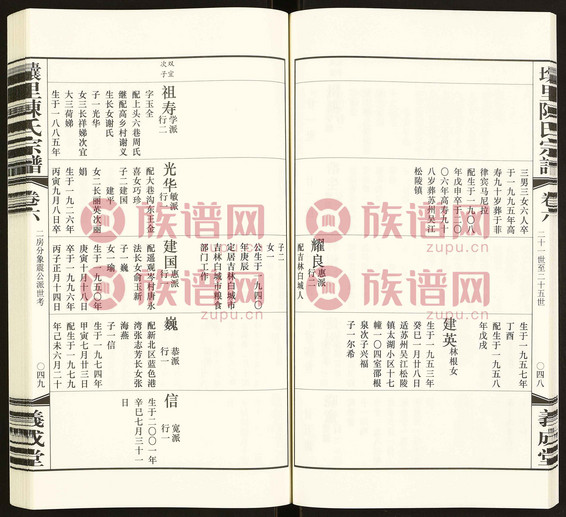 卷六
二十一世至二十五世
〇四八
義成堂
三男三女六人卒
于一九九五年高
寿九十岁葬于菲
律宾马尼拉
配生于一九〇八
年戊申卒于二〇
〇六年高寿九十
八岁葬苏州吴江
松陵镇
耀良 惠派 行二
配吉林白城人
生于一九五七年
丁酉
配生于一九五八
年戊戌
建英 林根女
生于一九五三年
癸巳一月廿八日
适苏州吴江松陵
镇太湖小区十七
幢一〇四室邵根
泉次子兴福
子一尔希
双宜
次子
祖寿 学派 行二
字玉全
配上头六巷周氏
继配高乡村谢义
生长女谢氏
子一光华
女三长祥娣次宜
大三荷娣
生于一八八五年
光华 敏派 行一
配大巷沟东王金
喜女巧珍
子二建国
建平
女二长丽英次丽
娟
生于一九二六年
丙寅九月八日卒
子二
女一
公生于一九四〇
年庚辰
定居吉林白城市
吉林白城市粮食
部门工作
建国 惠派 行一
配遥观岑村唐永
法长女俞玉新
子一巍
女一瑜
生于一九五〇年
庚寅十月十八日
卒于一九九六年
丙子正月十四日
巍 恭派 行一
配新北区蓝色港
湾张志芳长女张
海燕
子一信
生于一九七四年
甲寅七月廿三日
配生于一九七九
年己未六月二十
日
信 宽派 行一
生于二〇〇一年
辛巳七月三十一
日
壤里陳氏宗譜
卷六
二房分象震公派世考
〇四九
義成堂
族谱网
zupu.cn